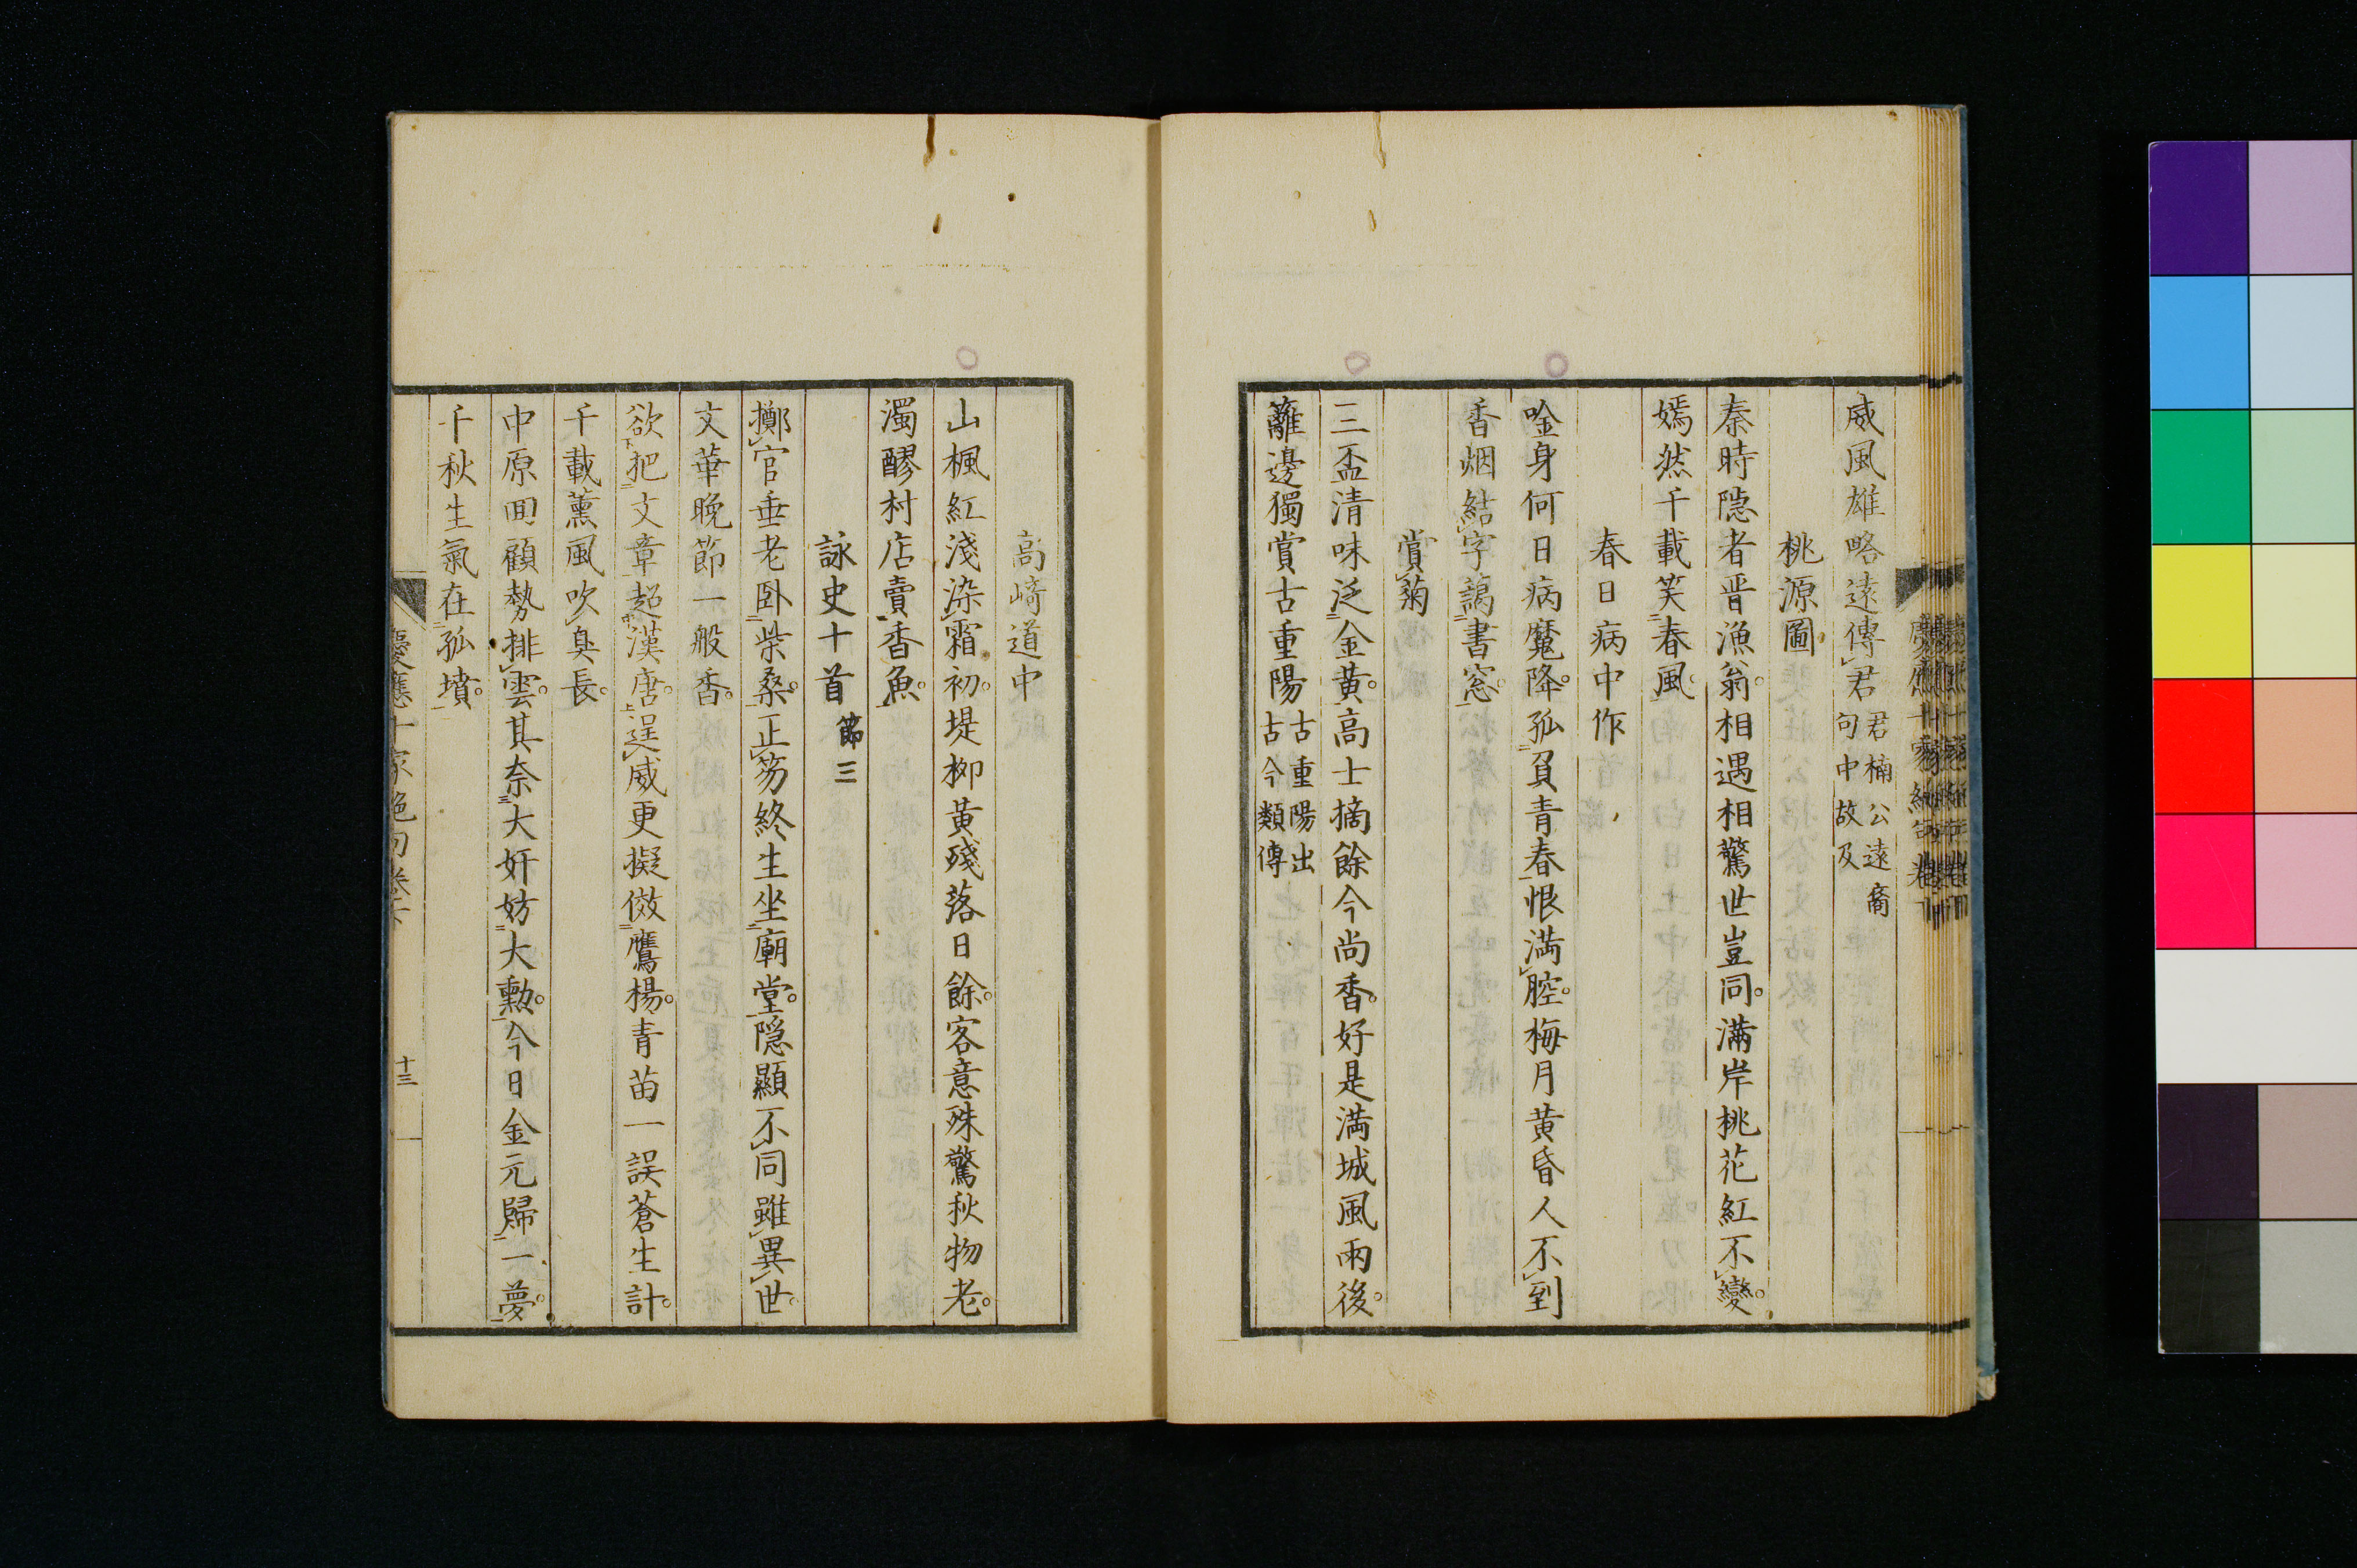 威風雄略遠傳君 君楠公遠裔句中故及
桃源圖
秦時隠者晋漁翁相遇相驚世豈同滿岸桃花紅不變
嫣然千載笑春風
春日病中作
唫身何日病魔降孤負青春恨満腔梅月黄昏人不到
香烟結字謁書窓
賞菊
三盃清味泛金黄高士摘餘今尚香好是満城風雨後
籬邊獨賞古重陽 古重陽出古今類傳
高崎道中
山楓紅淺染霜初堤柳黄殘落日餘客意殊驚秋物老
濁醪村店賣香魚
詠史十首 節三
擲官垂老卧柴桑正笏終生坐廟堂隠顯不同雖異世
文華晩節一般香
欲把文章超漢唐逞威更擬傚鷹楊青苗一誤蒼生計
千載薫風吹臭長
中原囬顧勢排雲其奈大奸妨大勲今日金元歸一夢
千秋生氣在孤墳
慶應十家絶句卷
十三